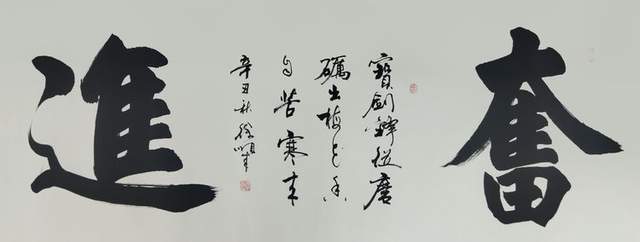 奮
寶劍鋒從磨
礪出梅花香
自苦寒来
辛丑秋徐
進